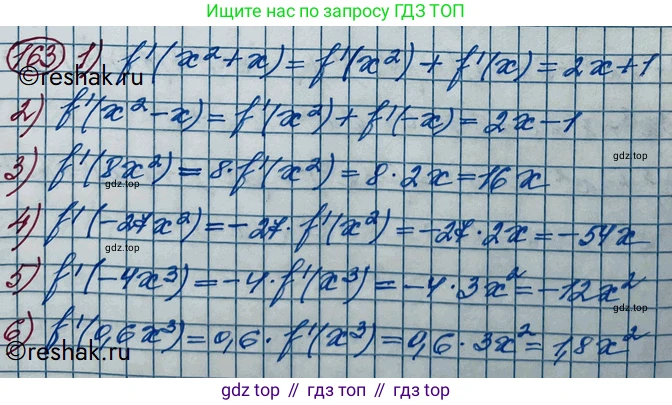 Ищите нас по запросу ГДЗ ТОП
163 1) f'(x²+x) = f'(x²) + f'(x) = 2x+1
©reshak.ru
2) f'(x²-x) = f'(x²) + f'(-x) = 2x-1
gdz.top
3) f'(8x²) = 8·f'(x²) = 8·2x = 16x
gdz.top
gdz.top
gdz.top
4) f'(-27x²) = -27·f'(x²) = -27·2x = -54x
gdz.top
gdz.top
gdz.top
5) f'(-4x³) = -4·f'(x³) = -4·3x² = -12x²
6) f'(0,6x³) = 0,6·f'(x³) = 0,6·3x² = 1,8x²
©reshak.ru
©reshak.ru
gdz top // гдз топ // gdz.top